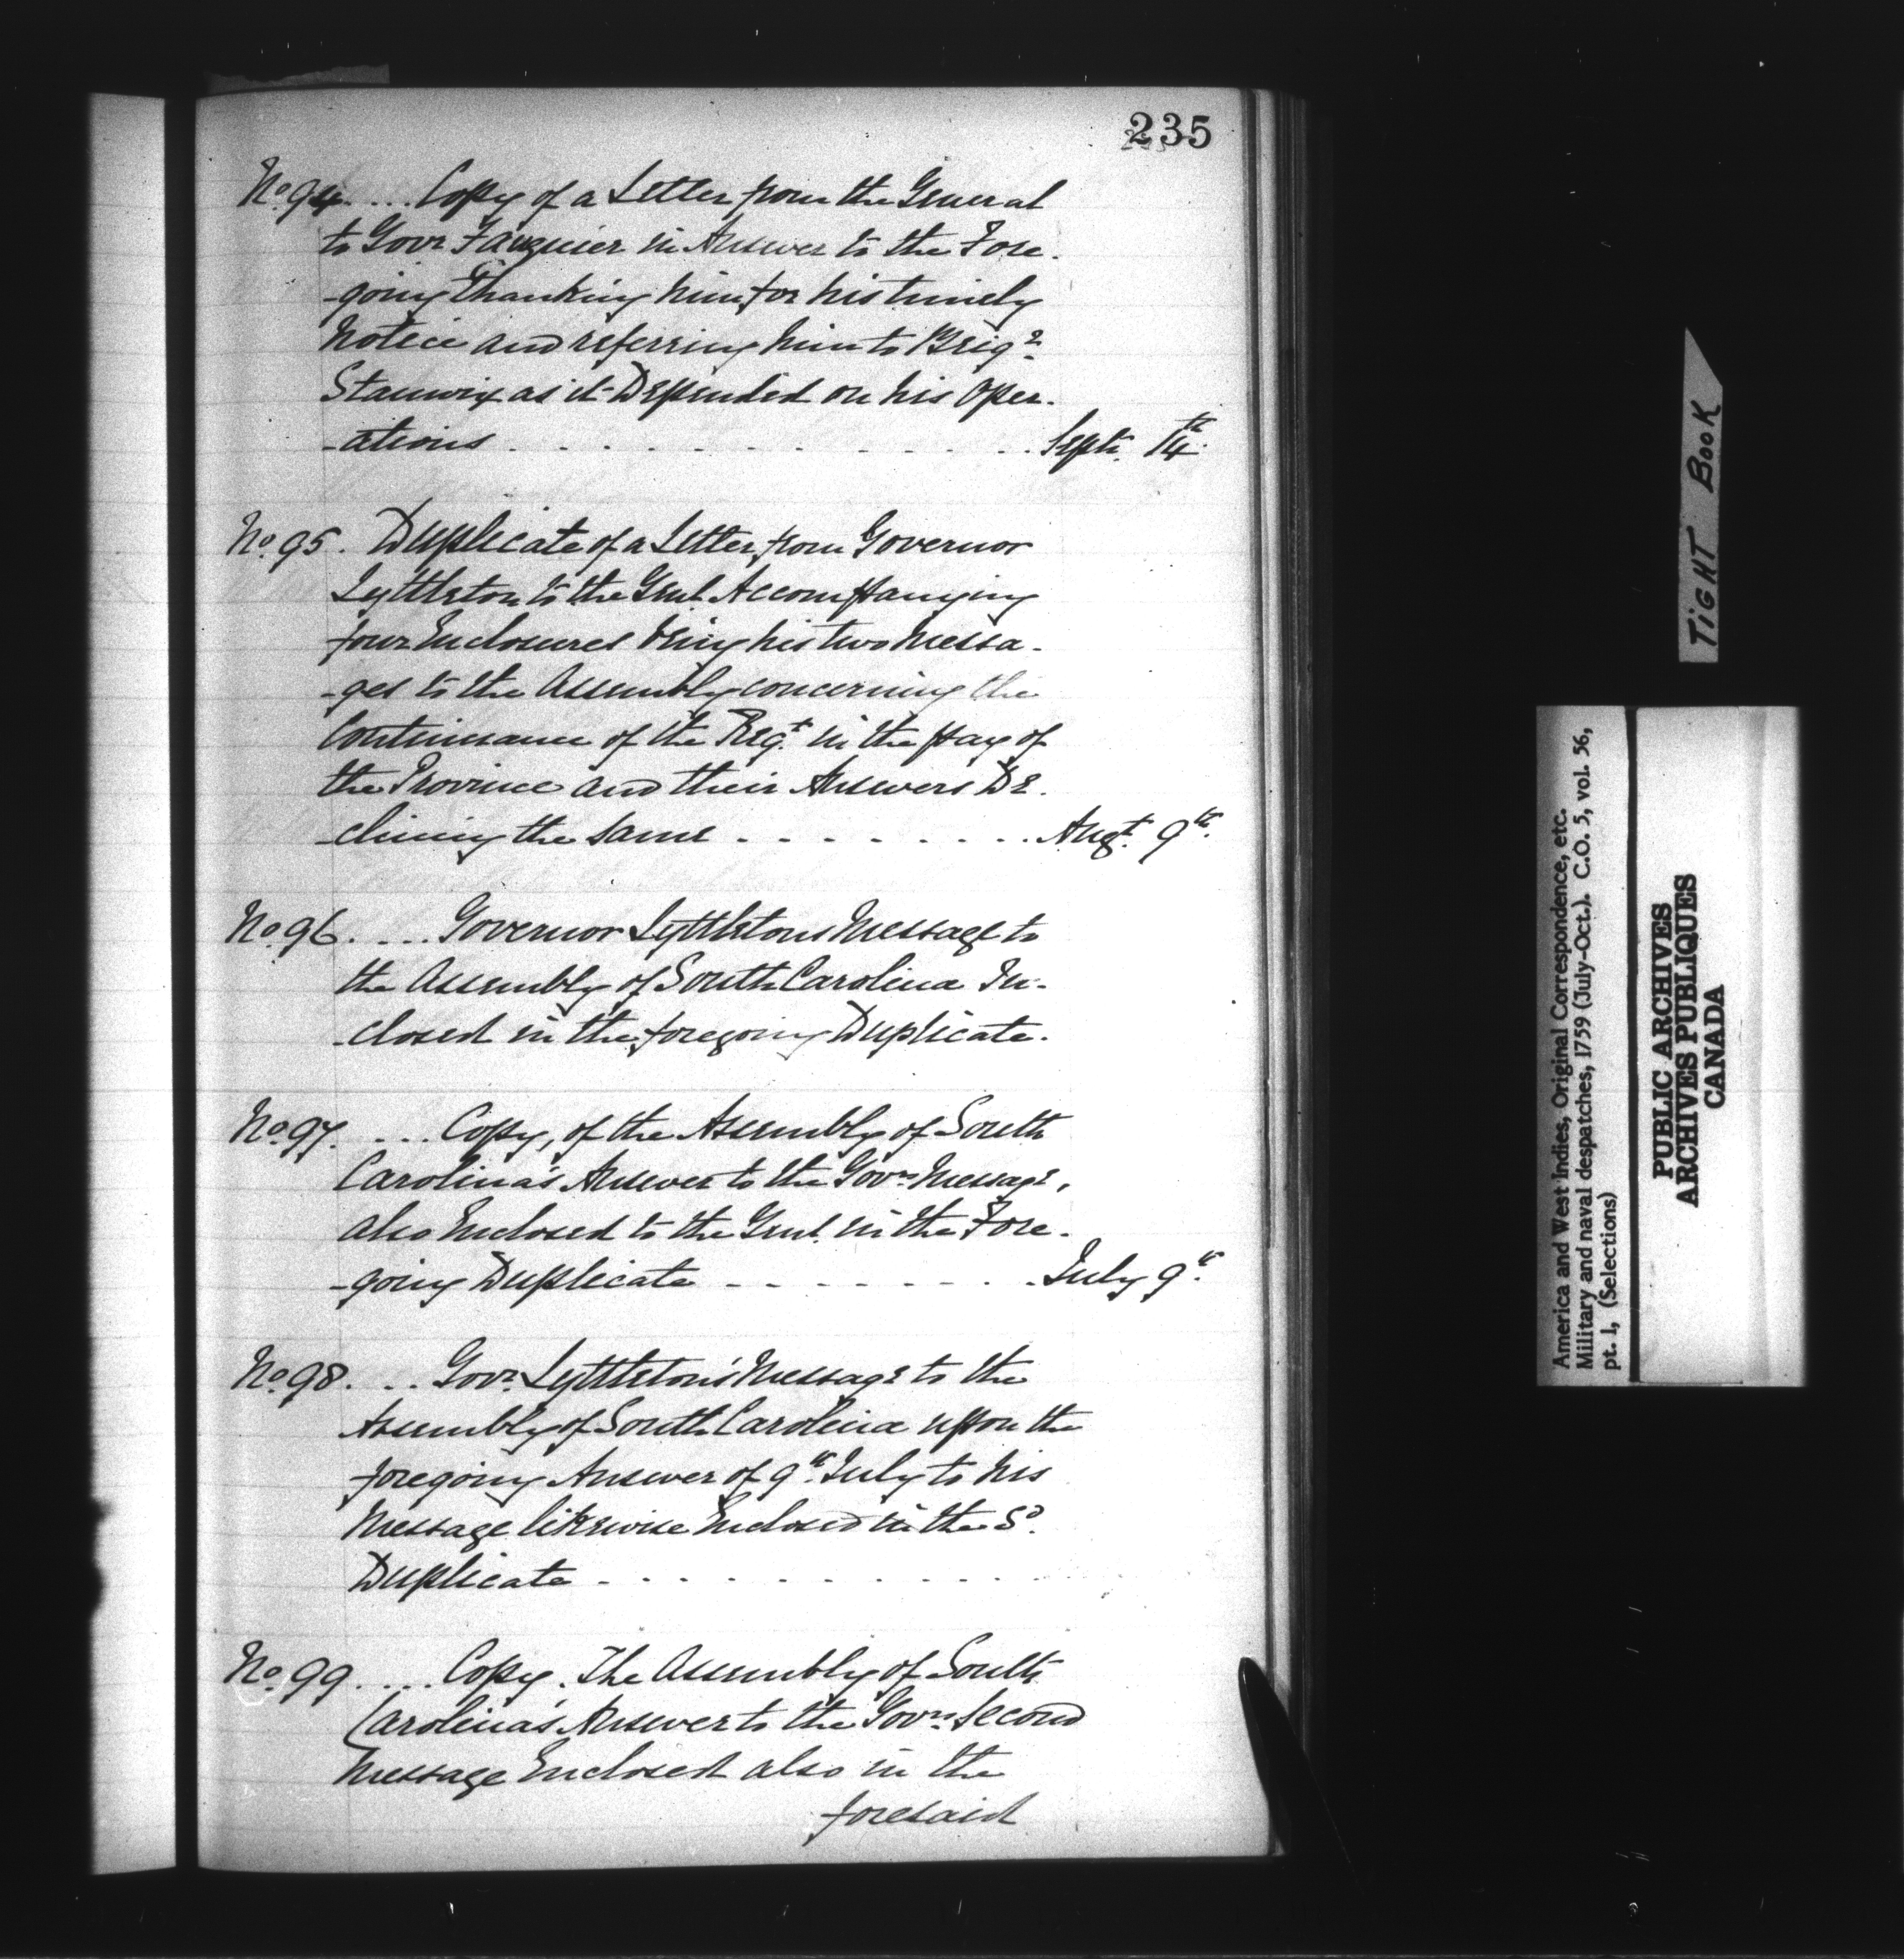 235
No. 94 .... Copy of a Letter from the General
to Govr Fauquier in Answer to the Fore-
-going Thanking him for his timely
Notice and referring him to Brigr.
Stanwix as it Depended on his Oper-
-ations . . . . . . . . . . . . . Septr. 14th.
No. 95. Duplicate of a Letter from Governor
Lyttleton to the Genl. Accompanying
four Enclosures being his two Messa-
-ges to the Assembly concerning the
Continuance of the Regt. in the pay of
the Province and their Answers De-
-clining the same . . . . . . . . Augt. 9th.
No. 96. .... Governor Lyttletons Message to
the Assembly of South Carolina In-
-closed in the foregoing Duplicate.
No. 97. ... Copy, of the Assembly of South
Carolina's Answer to the Govrs. Message,
also Enclosed to the Genl. in the Fore-
-going Duplicate . . . . . . . . July 9th.
No. 98. ... Govr. Lyttleton's Message to the
Assembly of South Carolina upon the
foregoing Answer of 9th. July to his
Message likewise Enclosed in the Sd.
Duplicate . . . . . . . . . . . .
No. 99 .... Copy. The Assembly of South
Carolina's Answer to the Govrs. Second
Message Enclosed also in the
foresaid
TIGHT BOOK
America and West Indies, Original Correspondence, etc.
Military and naval despatches, 1759 (July-Oct.). C.O. 5, vol. 56,
pt. 1, (Selections)
PUBLIC ARCHIVES
ARCHIVES PUBLIQUES
CANADA